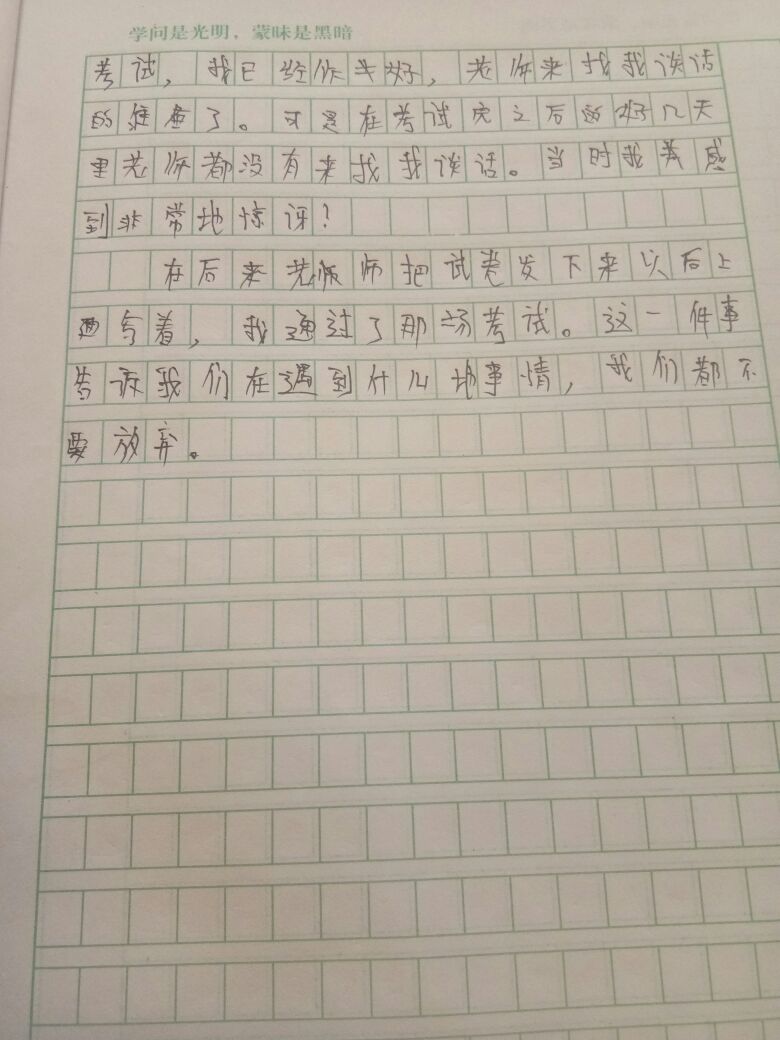 学问是光明，蒙昧是黑暗
考试，我已经作失好，老师来找我谈话
的准备了。可是在考试完之后的好几天
里老师都没有来找我谈话。当时我感
到非常地惊讶？
在后来老师把试卷发下来以后上
面写着，我通过了那场考试。这一件事
告诉我们在遇到什么地事情，我们都不
要放弃。